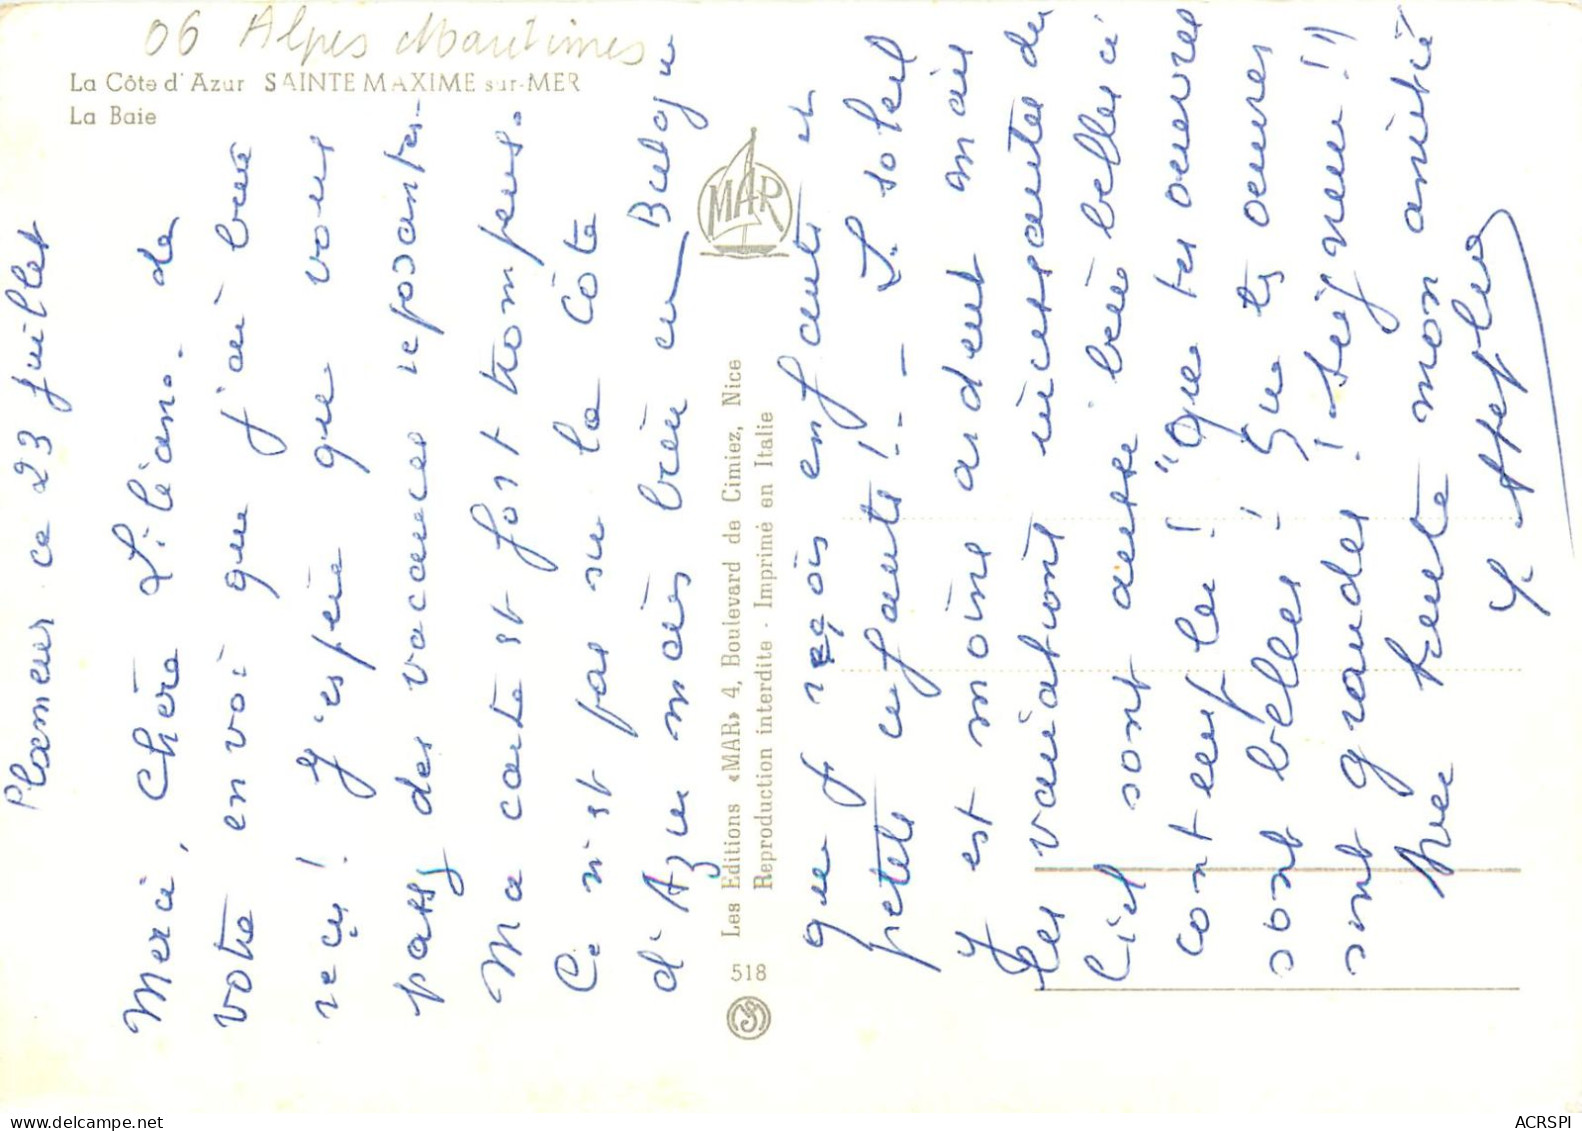 06 Alpes Maritimes
La Côte d'Azur SAINTE MAXIME sur-MER
La Baie
ce 23 juillet
Merci, chère Liliane de
votre envoi que j'ai bien
reçu! J'espère que vous
passez des vacances reposantes-
Ma carte est fort trompeuse.
Ce n'est pas sur la Côte
d'Azur mais bien en
que je reçois enfants et
petits enfants! - - Le soleil
y est moins ardent mais
les variations incessantes du
Ciel sont aussi bien belles ici
contempler! "Que tes œuvres
sont belles! Que tes œuvres
sont grandes! Seigneur!!"
Avec toute mon amitié
MAR
Les Editions «MAR» 4, Boulevard de Cimiez, Nice
Reproduction interdite - Imprimé en Italie
518
ACRSPI